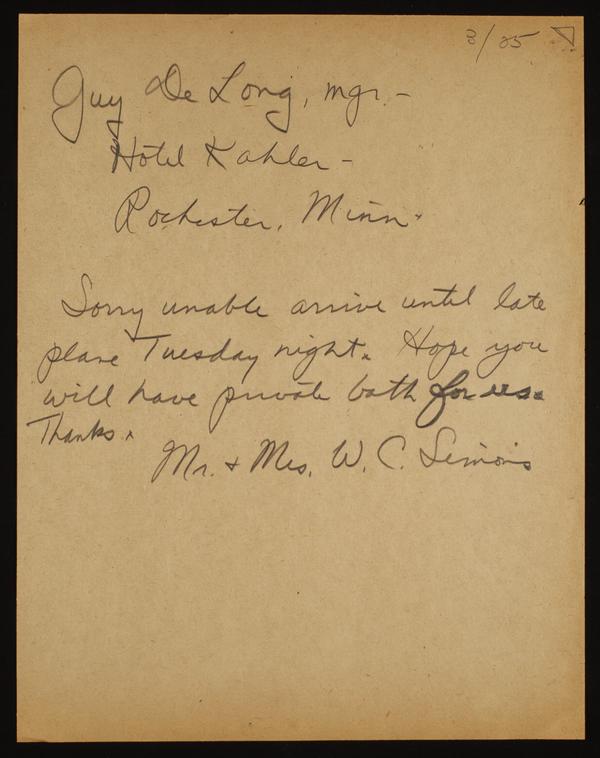 3/25
Guy De Long, mgr. -
Hotel Kahler -
Rochester, Minn.
Sorry unable arrive until late
plane Tuesday night. Hope you
will have private bath for us.
Thanks.
Mr. + Mrs. W. C. Simons